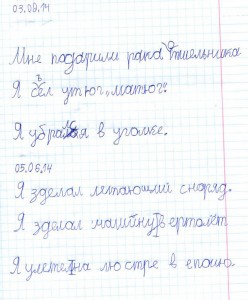 03.09.14
Мне подарили рака отшельника
Я съел утюг „матюг".
Я убрался в уголке.
05.06.14
Я зделал летающий снаряд.
Я зделал машину вертолёт
Я улетел на люстре в